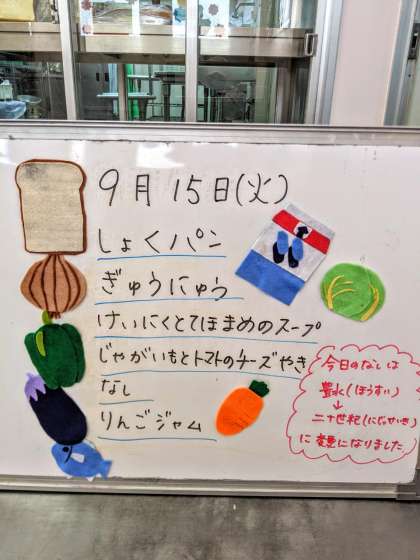 9月15日(火)
しょくパン
ぎゅうにゅう
けいにくとてぼまめのスープ
じゃがいもとトマトのチーズやき
なし
りんごジャム
今日のなしは
豊水(ほうすい)
↓
二十世紀(にじゅっせいき)
に変更になりました